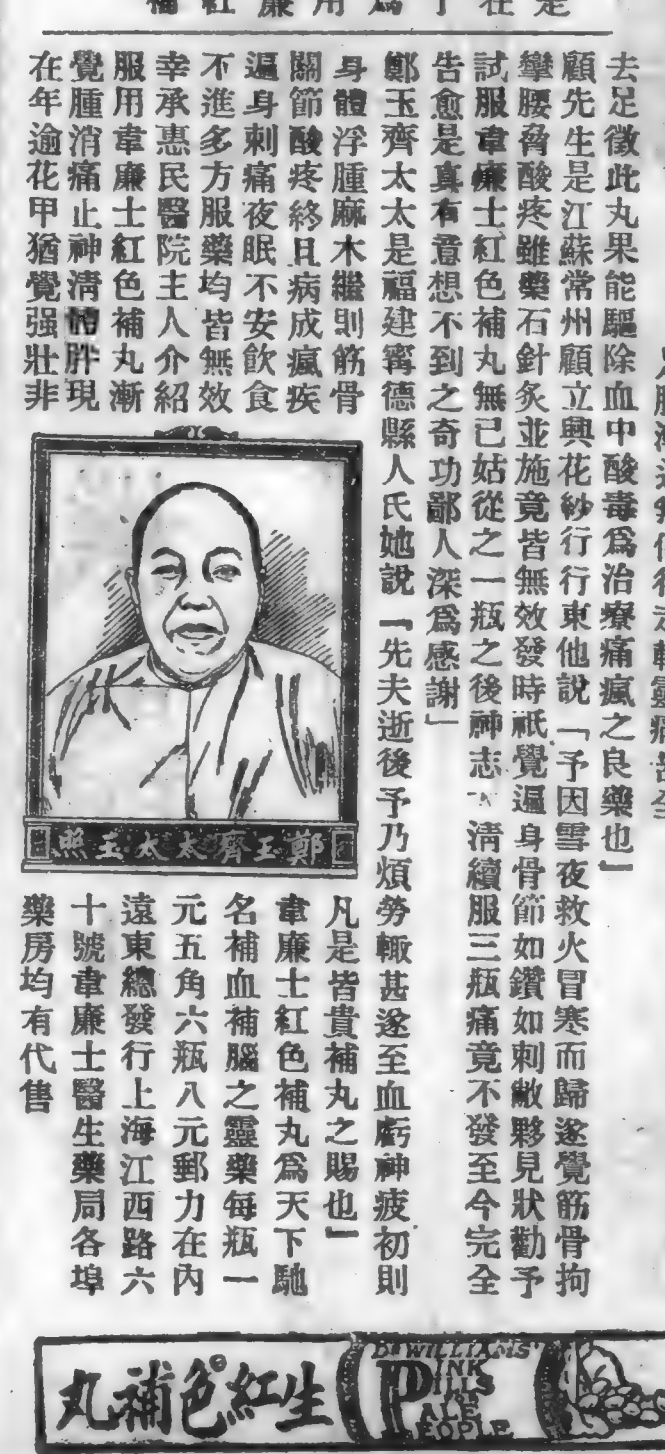 去足徵此丸果能驅除血中酸毒爲治療痛瘋之良藥也」
顧先生是江蘇常州顧立興花紗行行東他說「予因雪夜救火冒寒而歸遂覺筋骨拘
攣腰脅酸疼雖藥石針炙並施竟皆無效發時祇覺遍身骨節如鑽如刺敝夥見狀勸予
試服韋廉士紅色補丸無已姑從之一瓶之後神志清續服三瓶痛竟不發至今完全
告愈是真有意想不到之奇功鄙人深爲感謝」
鄭玉齊太太是福建寗德縣人氏她說「先夫逝後予乃煩勞輙甚遂至血虧神疲初則
身體浮腫麻木繼則筋骨
關節酸疼終日病成瘋疾
遍身刺痛夜眠不安飲食
不進多方服藥均皆無效
幸承惠民醫院主人介紹
服用韋廉士紅色補丸漸
覺腫消痛止神清體胖現
在年逾花甲猶覺强壯非
鄭玉齊太太玉照
凡是皆貴補丸之賜也」
韋廉士紅色補丸爲天下馳
名補血補腦之靈藥每瓶一
元五角六瓶八元郵力在內
遠東總發行上海江西路六
十號韋廉士醫生藥局各埠
藥房均有代售
生紅色補丸
DR WILLIAMS'
PINK
PILLS
FOR
PALE
PEOPLE